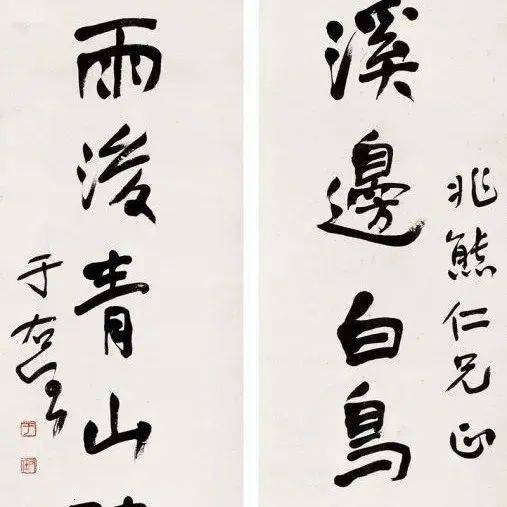 兆熊仁兄正
溪邊白鳥
雨後青山
于右任